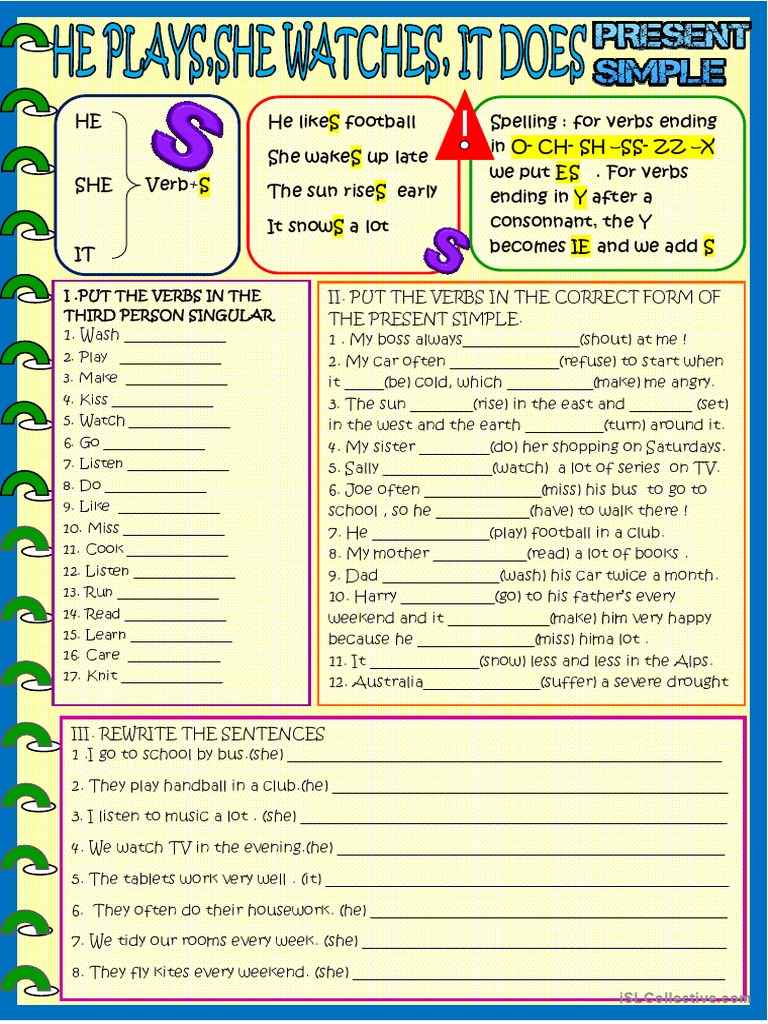 HE PLAYS,SHE WATCHES, IT DOES
PRESENT
SIMPLE
HE
SHE
IT
Verb+S
S
He likeS football
She wakeS up late
The sun riseS early
It snowS a lot
S
!
Spelling : for verbs ending
in O- CH- SH –SS- ZZ –X
we put ES . For verbs
ending in Y after a
consonnant, the Y
becomes IE and we add S
I .PUT THE VERBS IN THE
THIRD PERSON SINGULAR
1. Wash ______________
2. Play ______________
3. Make ______________
4. Kiss ______________
5. Watch ______________
6. Go ______________
7. Listen ______________
8. Do ______________
9. Like ______________
10. Miss ______________
11. Cook ______________
12. Listen ______________
13. Run ______________
14. Read ______________
15. Learn ______________
16. Care _____________
17. Knit ______________
II. PUT THE VERBS IN THE CORRECT FORM OF
THE PRESENT SIMPLE.
1 . My boss always________________(shout) at me !
2. My car often _______________(refuse) to start when
it _____(be) cold, which ____________(make) me angry.
3. The sun ________(rise) in the east and ________ (set)
in the west and the earth __________(turn) around it.
4. My sister _________(do) her shopping on Saturdays.
5. Sally ______________(watch) a lot of series on TV.
6. Joe often ________________(miss) his bus to go to
school , so he ____________(have) to walk there !
7. He ________________(play) football in a club.
8. My mother ____________(read) a lot of books .
9. Dad _______________(wash) his car twice a month.
10. Harry ____________(go) to his father's every
weekend and it _____________(make) him very happy
because he _______________(miss) hima lot .
11. It ______________(snow) less and less in the Alps.
12. Australia_______________(suffer) a severe drought
III. REWRITE THE SENTENCES
1 .I go to school by bus.(she) ______________________________
2. They play handball in a club.(he) ______________________________
3. I listen to music a lot . (she) ______________________________
4. We watch TV in the evening.(he) ______________________________
5. The tablets work very well . (it) ______________________________
6. They often do their housework. (he) ______________________________
7. We tidy our rooms every week. (she) ______________________________
8. They fly kites every weekend. (she) ______________________________
iSLCollective.com